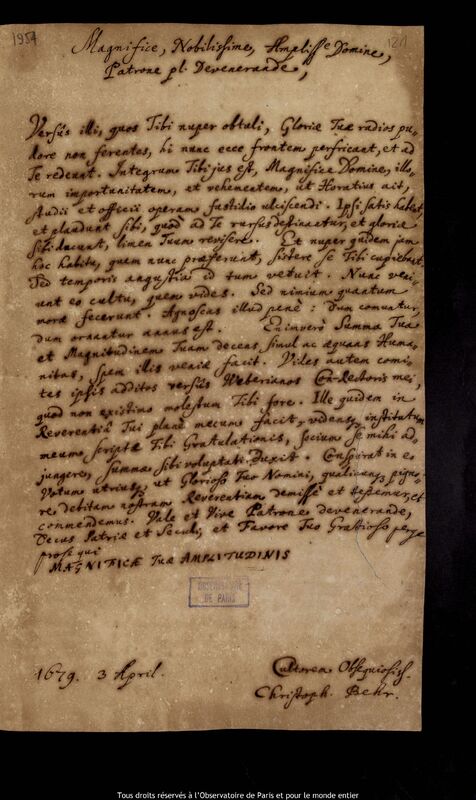 1954
121
Magnifice, Nobilissime, Ampliss^e Domine,
Patrone pl. Devenerande,
Versus illi, quos Tibi nuper obtuli, Gloriæ Tuæ radios pu-
dore non ferentes, hi nunc ecce frontem perfricant, et ad
Te redeunt. Integrum Tibi jus est, Magnifice Domine, illo-
rum importunitatem, et vehementem, ut Horatius ait,
studii et officii operam fastidio ulciscendi. Ipsi satis habent,
et plaudunt sibi, quod ad Te rursus destinantur, et gloriæ
sibi ducunt, limen Tuum revisere. Et nuper quidem jam
hoc habitu, quem nunc præferunt, sistere se Tibi cupiebant.
Sed temporis angustia id tum vetuit. Nunc veni-
unt eo cultu, quem vides. Sed nimium quantum
moræ fecerunt. Agnoscas illud penè: Dum comuntur,
dum ornantur annus est. Enimverò Summa Tua
et Magnitudinem Tuam decens, simul ac æquans Huma-
nitas, spem illis veniæ facit. Vides autem comi-
tes ipsis additos versus Weberianos Con-Rectoris mei,
quod non existimo molestum Tibi fore. Ille quidem in
Reverentia Tui planè mecum facit, vidensq institutum
meum scriptæ Tibi Gratulationis, socium se mihi ad-
jungere, summæ sibi voluptati duxit. Conspirat in eo
Votum utriusq, ut Glorioso Tuo Nomini, qualicunq pigno-
re, debitam nostram Reverentiam demissè et testemur, et
commendemus. Vale et Vive Patrone devenerande,
Decus Patriæ et Seculi, et Favore Tuo Gratioso perge
prosequi
MAGNIFICÆ TUÆ AMPLITUDINIS
OBSERVATOIRE
DE PARIS
1679. 3 April.
Cultorem Obsequiosiss.
Christoph. Behr.
Tous droits réservés à l'Observatoire de Paris et pour le monde entier